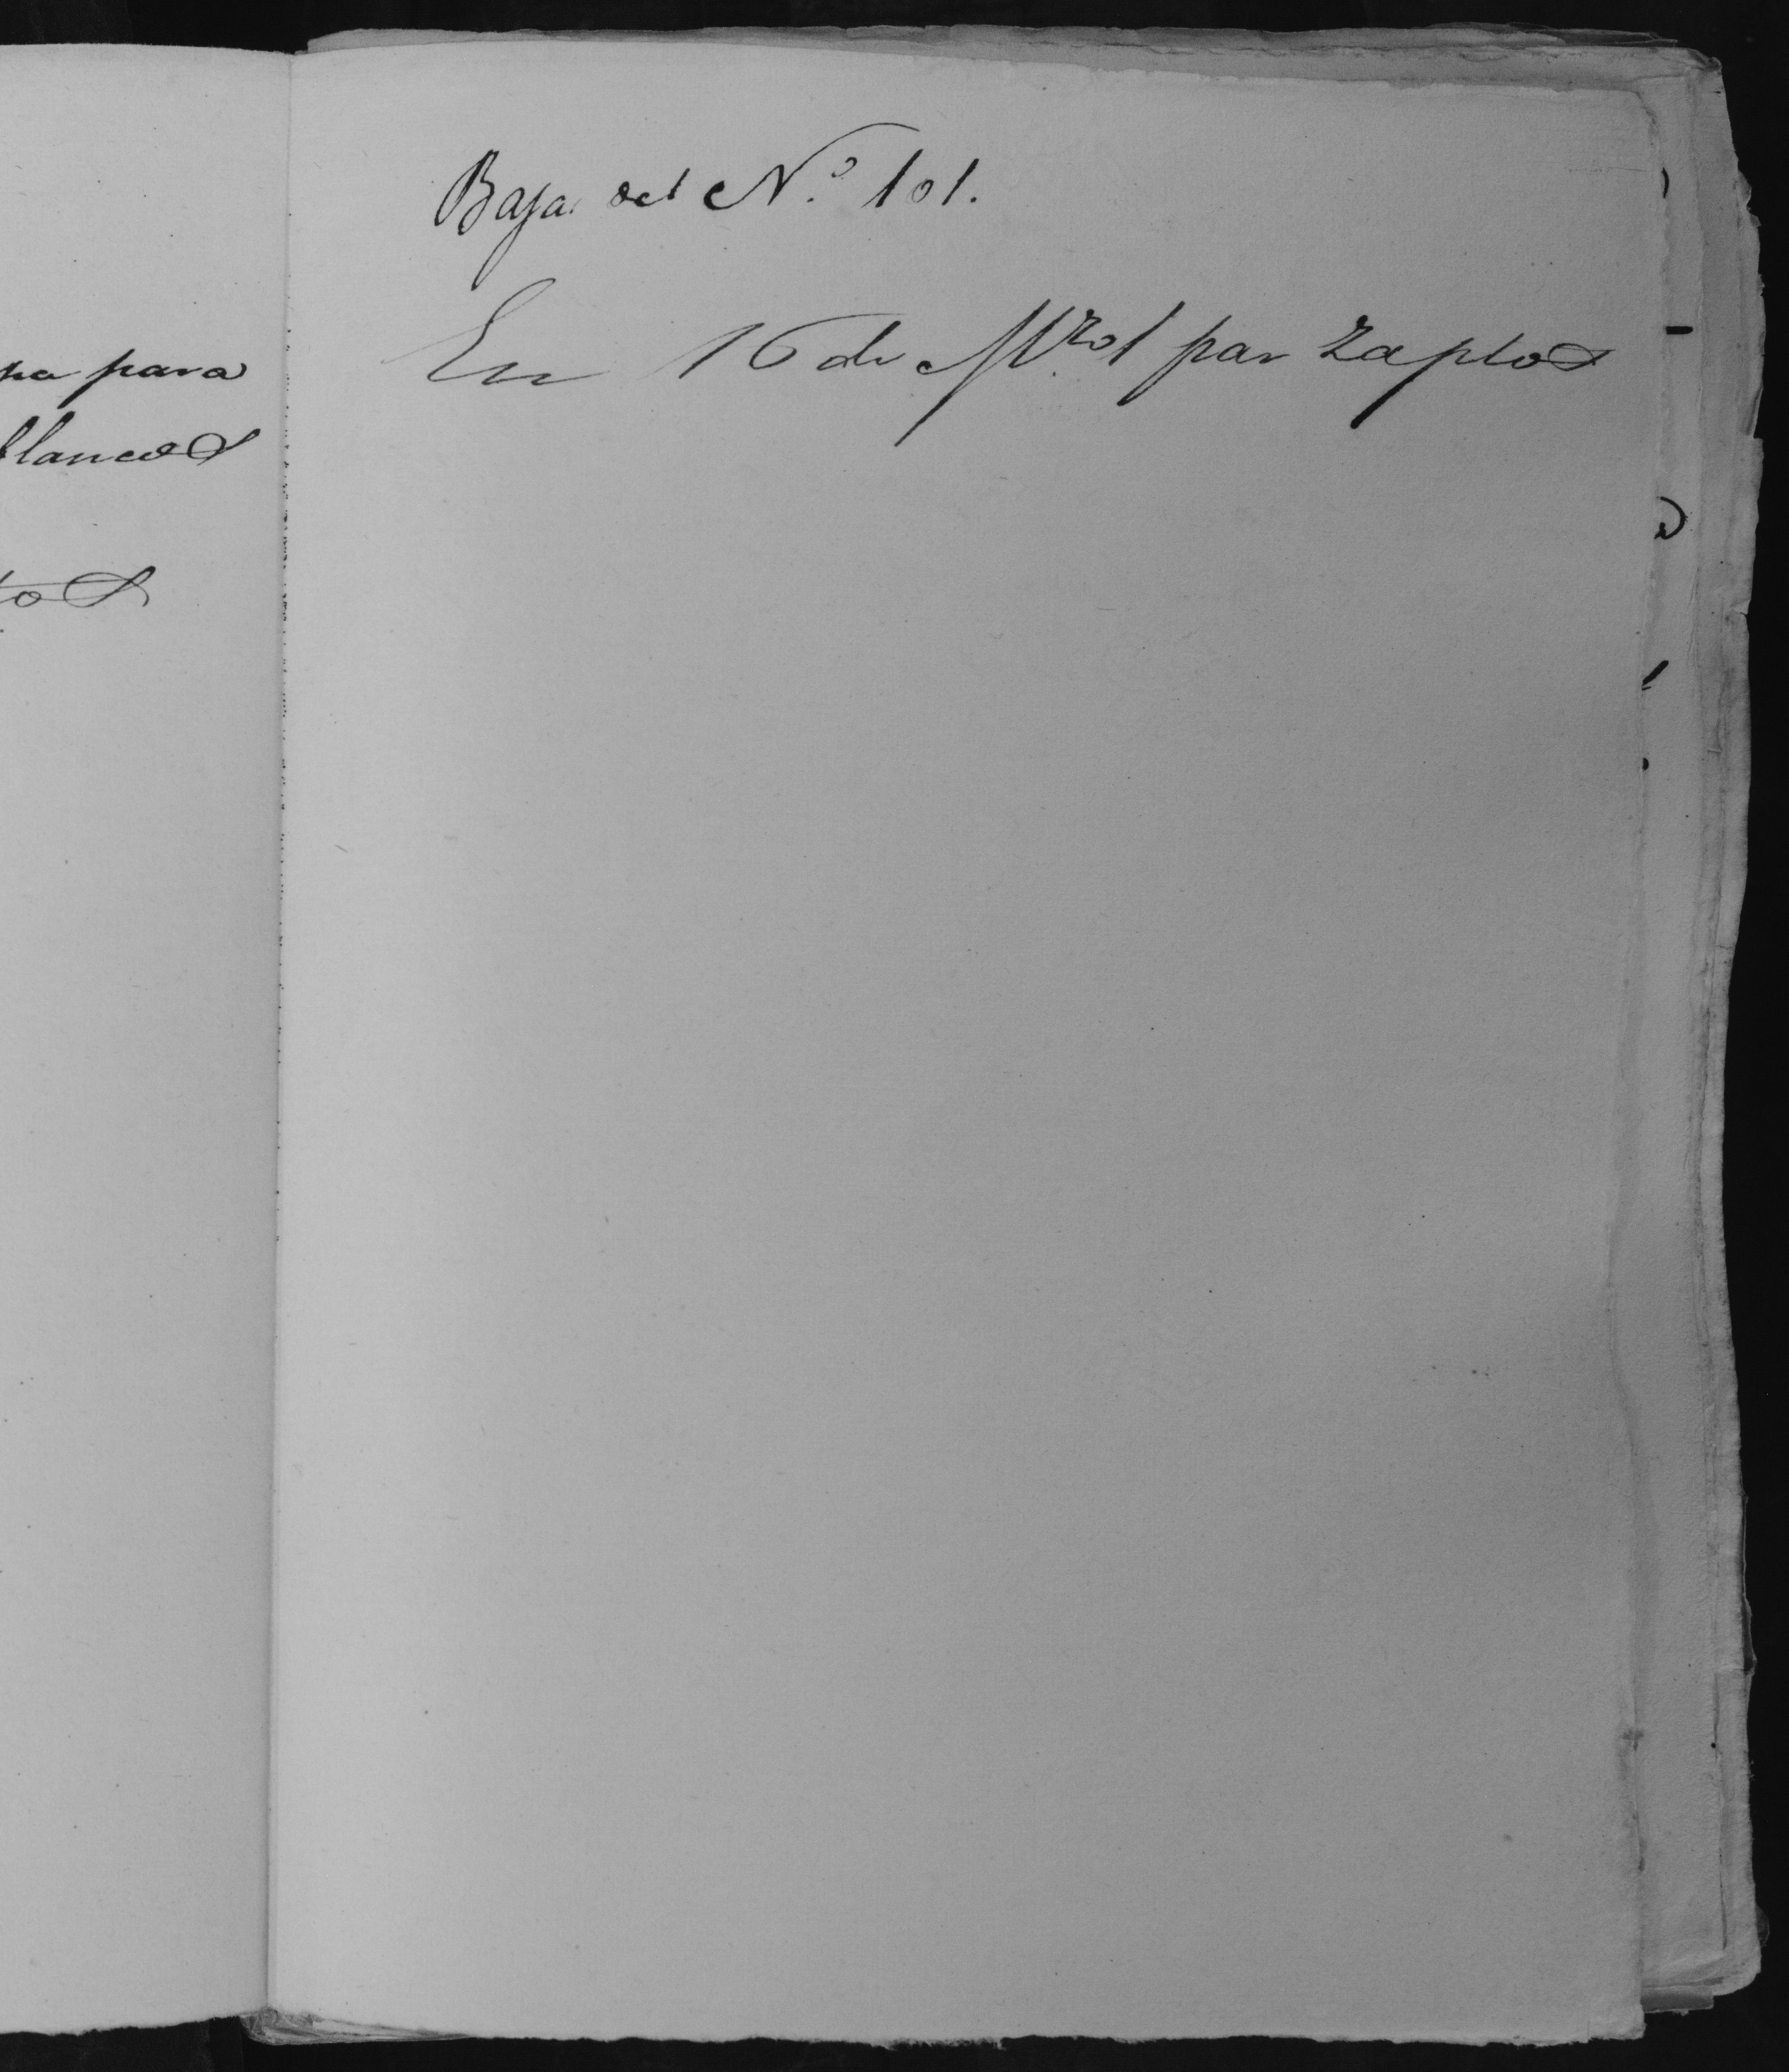 pa para
blancos
tos
Baja del Nº 101.
En 16 de Mzo 1 par zaptos